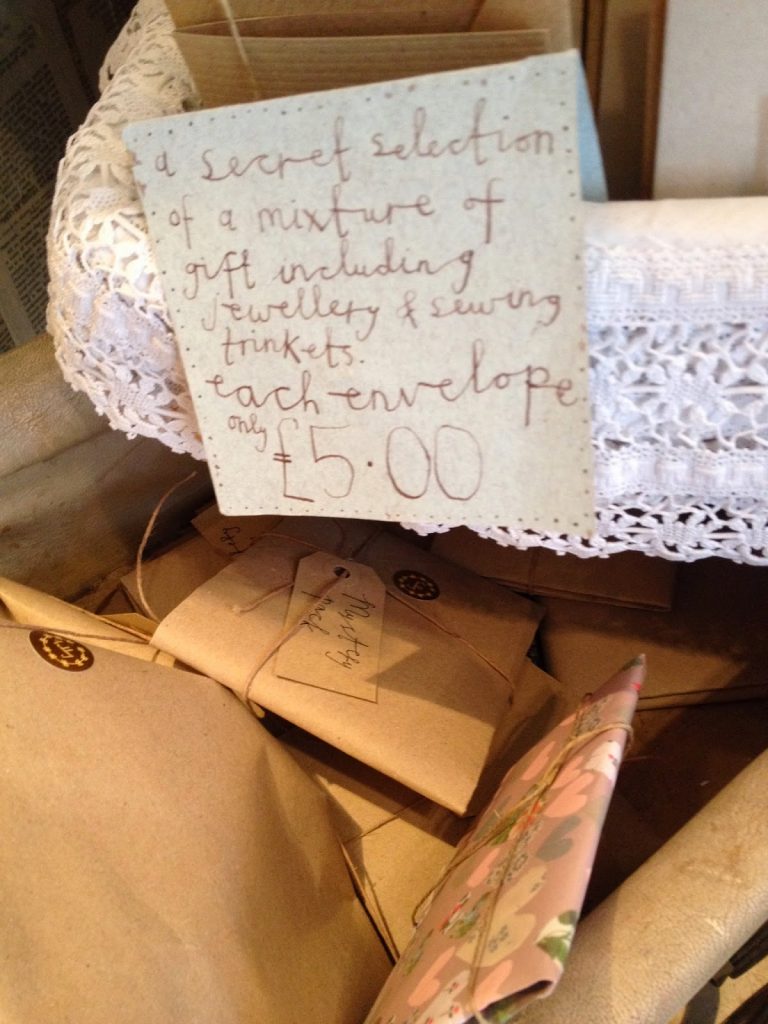 a secret selection
of a mixture of
gift including
jewellery & sewing
trinkets.
each envelope
only
£5.00
Mystery
pack